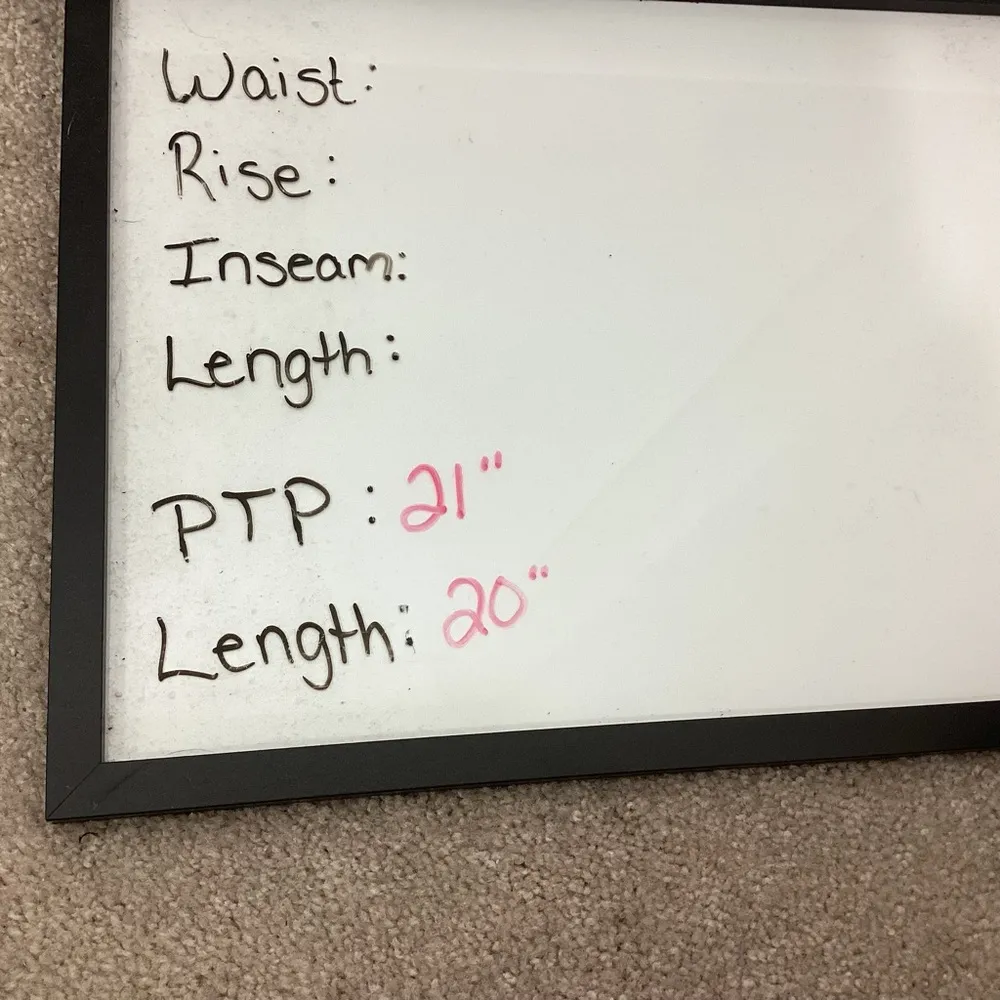 Waist:
Rise:
Inseam:
Length:
PTP: 21"
Length: 20"